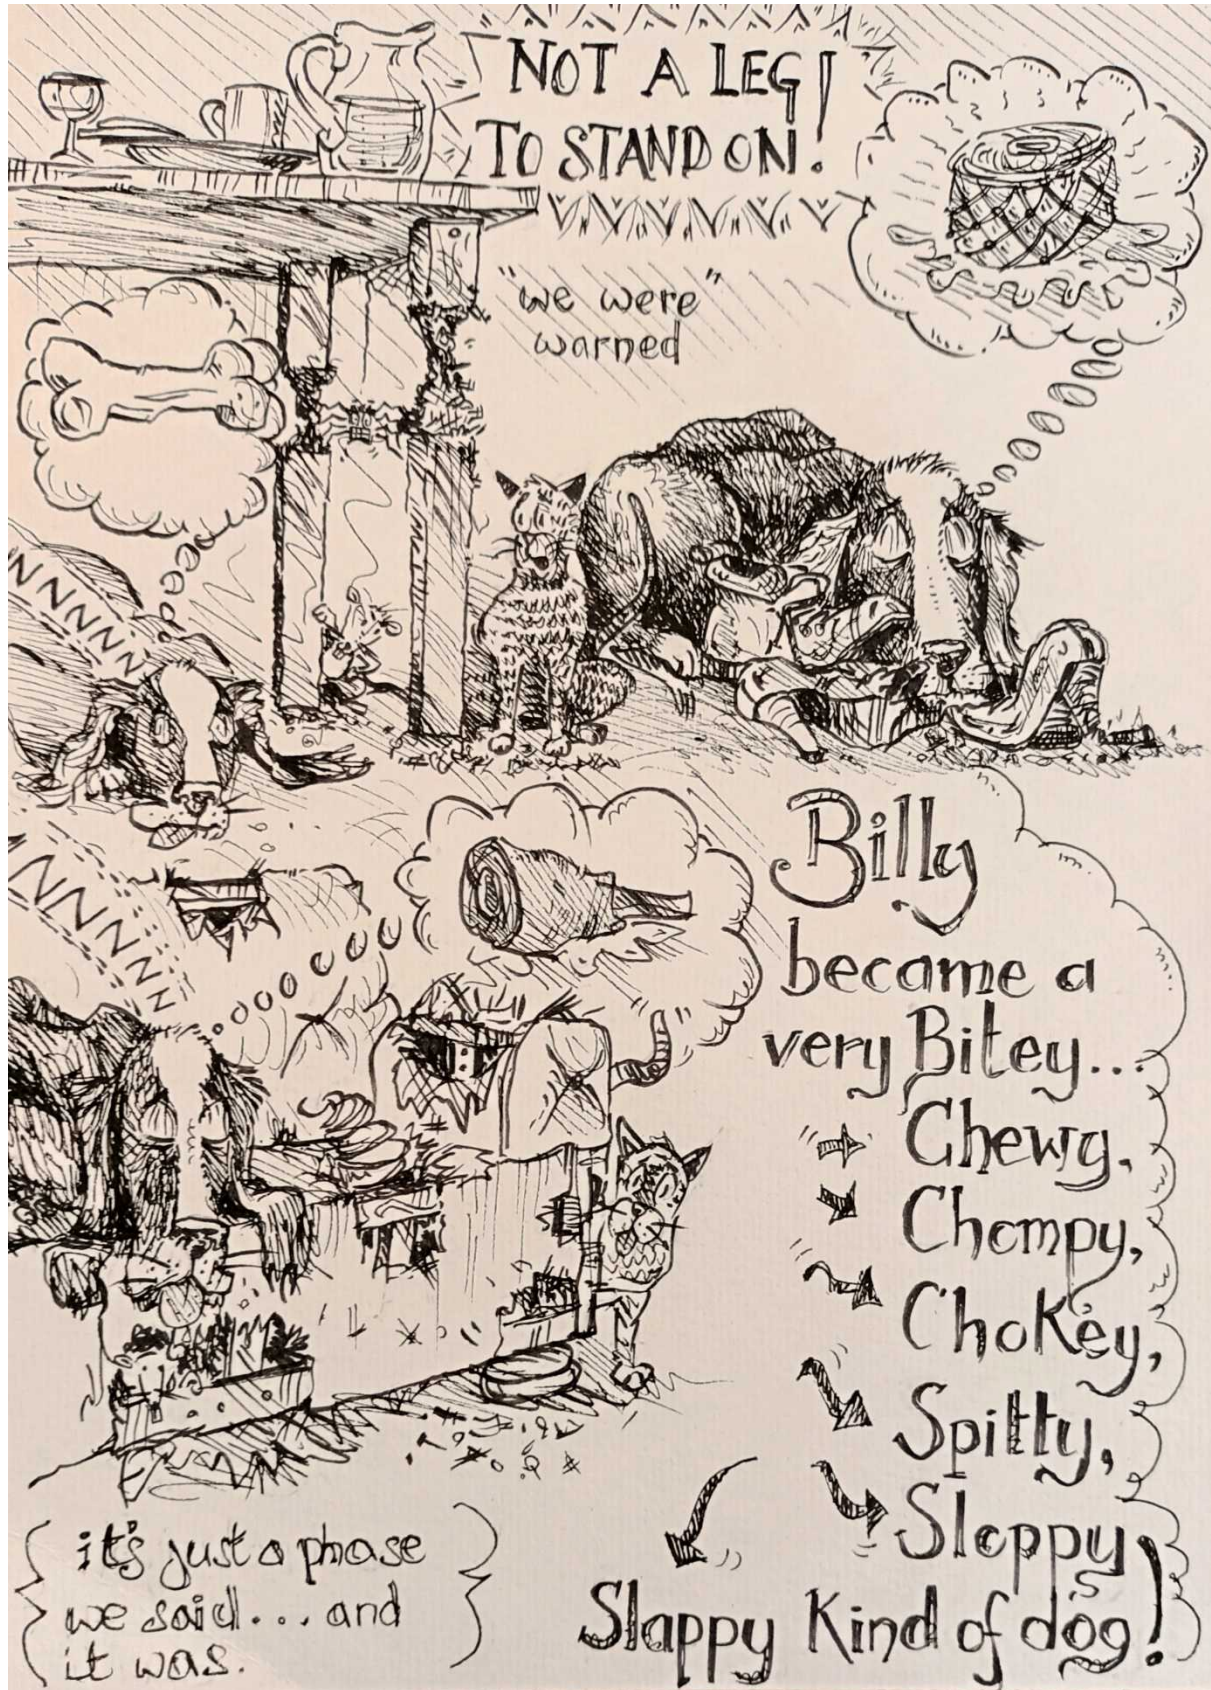 NOT A LEG
TO STAND ON!
"we were"
warned
NNNNNN
NNNNNNN
Billy
became a
very Bitey...
Chewy,
Chompy,
Chokey,
Spitty,
Sloppy
Slappy Kind of dog!
it's just a phase
we said... and
it was.